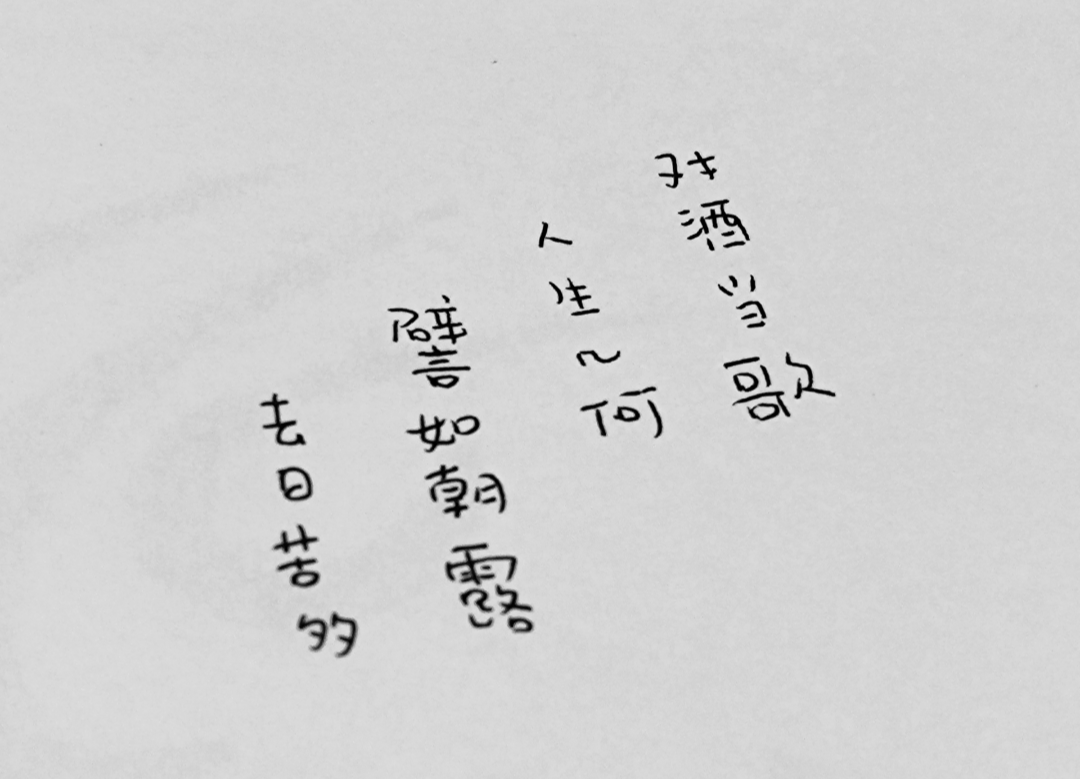 对酒当歌
人生几何
譬如朝露
去日苦多